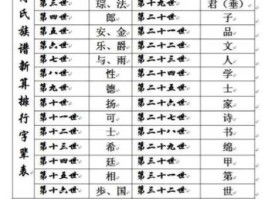 氏族谱新算排行字辈表
第三世 琮、法 第十九世 君（垂）
第四世 郎 第二十世 子
第五世 安、金 第二十一世 品
第六世 乐、爵 第二十二世 文
第七世 与、雨 第二十三世 人
第八世 性 第二十四世 学
第九世 德 第二十五世 士
第十世 扬 第二十六世 家
第十一世 可 第二十七世 诗
第十二世 士 第二十八世 书
第十三世 希 第二十九世 绵
第十四世 廷 第三十世 甲
第十五世 相 第三十一世 第
第十六世 步、国 第三十二世 世